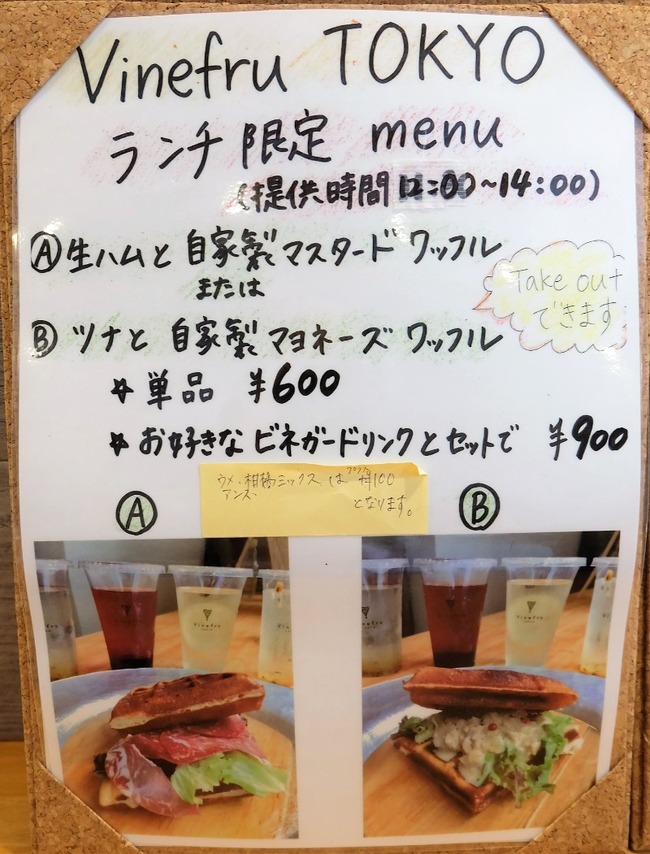 Vinefru TOKYO
ランチ限定 menu
(提供時間 12:00~14:00)
Ⓐ生ハムと自家製マスタードワッフル
または
Ⓑ ツナと自家製マヨネーズワッフル
Take out
できます
☆単品 ¥600
☆お好きなビネガードリンクとセットで ¥900
ウメ、柑橘ミックスは プラス ¥100
アンズ、
となります。
Ⓐ
Ⓑ
Vinefru
Vinefru
Vinefru
Vinefru